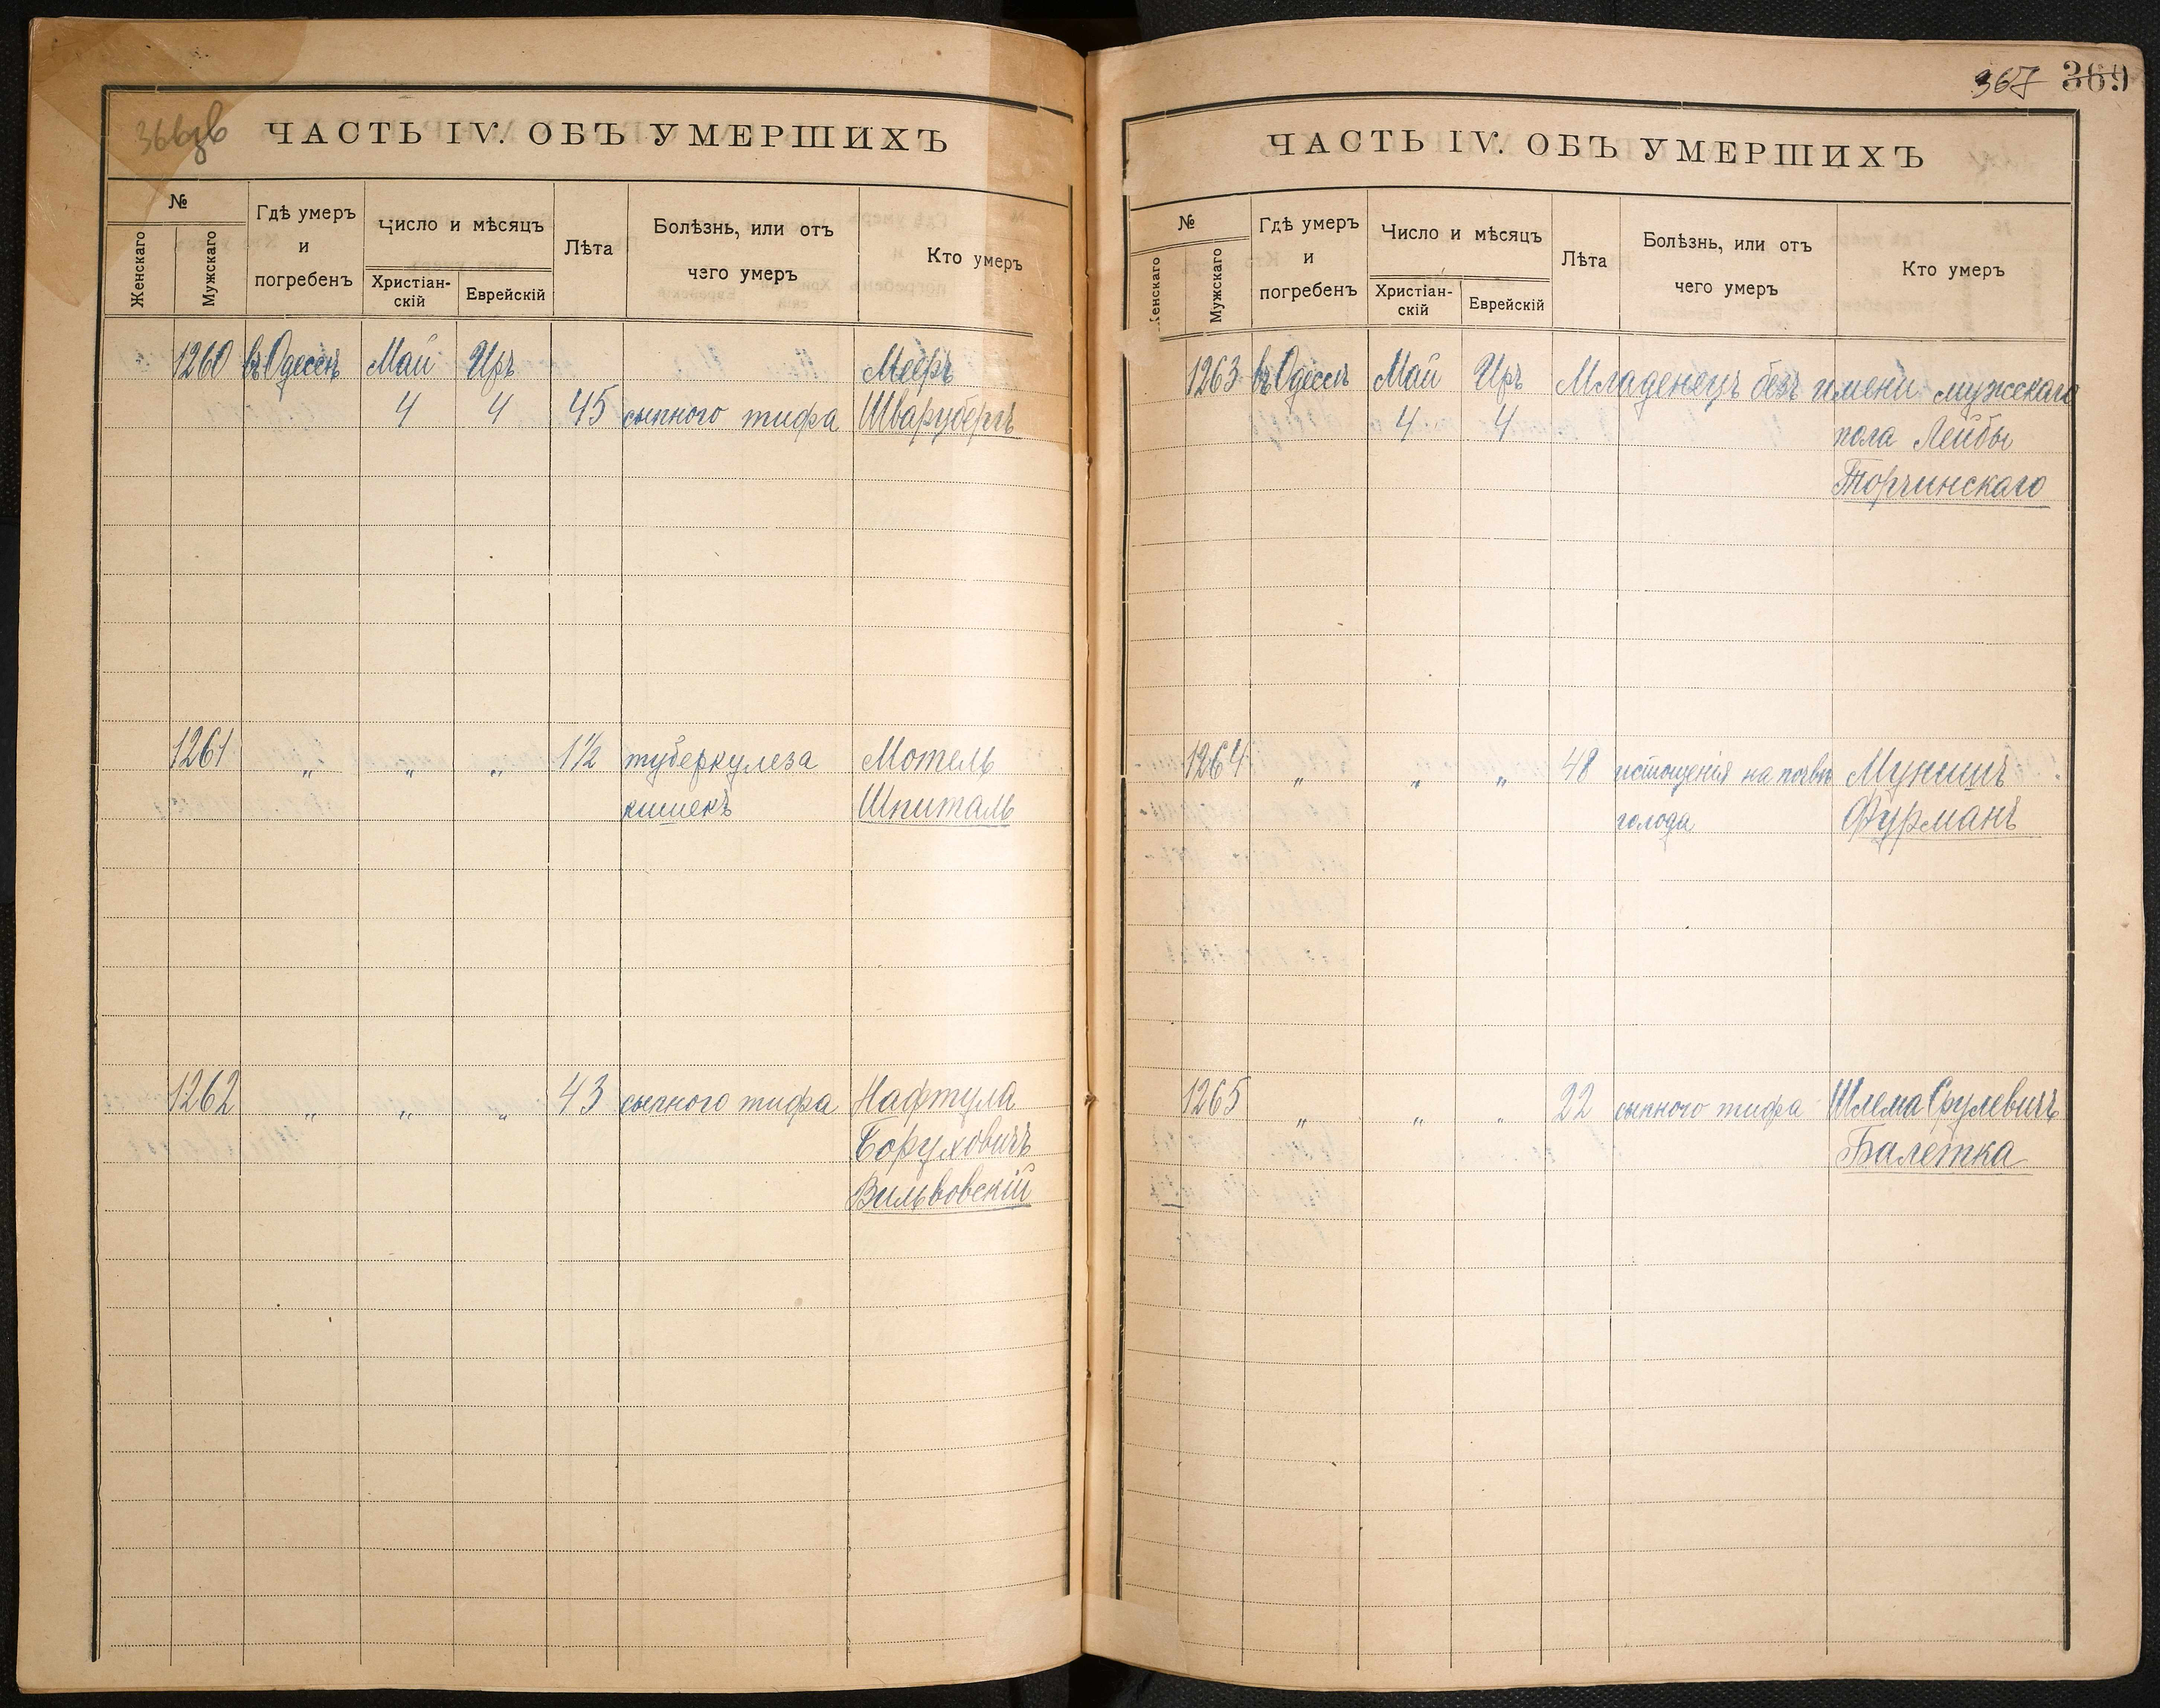 366зв
ЧАСТЬ IV. ОБЪ УМЕРШИХЪ
№
Женскаго
Мужскаго
Гдѣ умеръ
и
погребенъ
Число и мѣсяцъ
Христіан-
скій
Еврейскій
Лѣта
Болѣзнь, или отъ
чего умеръ
Кто умеръ
1260 въ Одессѣ Май Иръ Мееръ
4 4 45 сыпного тифа Шварцбергъ
1261 „ „ „ 1½ туберкулеза Мотель
кишекъ Шпиталь
1262 „ „ „ 43 сыпного тифа Нафтула
Боруховичъ
Вильвовскій
367 369
ЧАСТЬ IV. ОБЪ УМЕРШИХЪ
№
Женскаго
Мужскаго
Гдѣ умеръ
и
погребенъ
Число и мѣсяцъ
Христіан-
скій
Еврейскій
Лѣта
Болѣзнь, или отъ
чего умеръ
Кто умеръ
1263 въ Одессѣ Май Иръ Младенецъ безъ имени мужскаго
4 4 пола Лейбы
Торчинскаго
1264 „ „ „ 48 истощенія на почвѣ Мунишъ
голода Фурманъ
1265 „ „ „ 22 сыпного тифа Шлема Срулевичъ
Балетка